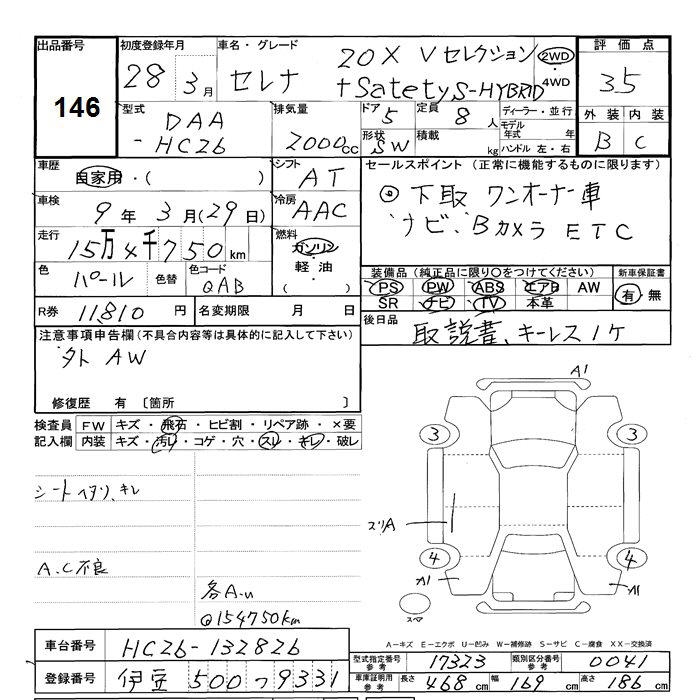 出品番号 初度登録年月 車名・グレード 評価点
146 28 3月 セレナ 20X Vセレクション 2WD・4WD 3.5
+Safety S-HYBRID
型式 排気量 ドア 定員 ディーラー・並行 外装 内装
DAA-HC26 2000cc 5 8人 モデル年式 年 B C
形状 SW 積載 kg ハンドル 左・右
車歴 自家用・( ) シフト AT セールスポイント (正常に機能するものに限ります)
車検 9年3月(29日) 冷房 AAC ◎下取 ワンオーナー車
走行 15万4千750km 燃料 ガソリン・軽油・ ナビ、Bカメラ ETC
色 パール 色替 色コード QAB 装備品 (純正品に限り○をつけてください) 新車保証書
PS PW ABS エアB AW 有・無
SR ナビ TV 本革
R券 11,810円 名変期限 月 日 後日品 取説書、キーレス1ケ
注意事項申告欄(不具合内容等は具体的に記入して下さい)
外AW
修復歴 有〔箇所 〕
検査員記入欄 FW キズ・飛石・ヒビ割・リペア跡・×要
内装 キズ・汚レ・コゲ・穴・スレ・キレ・破レ
シートヘタリ、キレ
A.C不良
各A-U
@154750km
A1
3 3
スリA
4 4
A1 A1
スペア
A-キズ E-エクボ U-凹み W-補修跡 S-サビ C-腐食 XX-交換済
車台番号 HC26-132826 型式指定番号 参考 17323 類別区分番号 参考 0041
登録番号 伊豆 500つ9331 車庫証明用 参考 長さ 468cm 幅 169cm 高さ 186cm